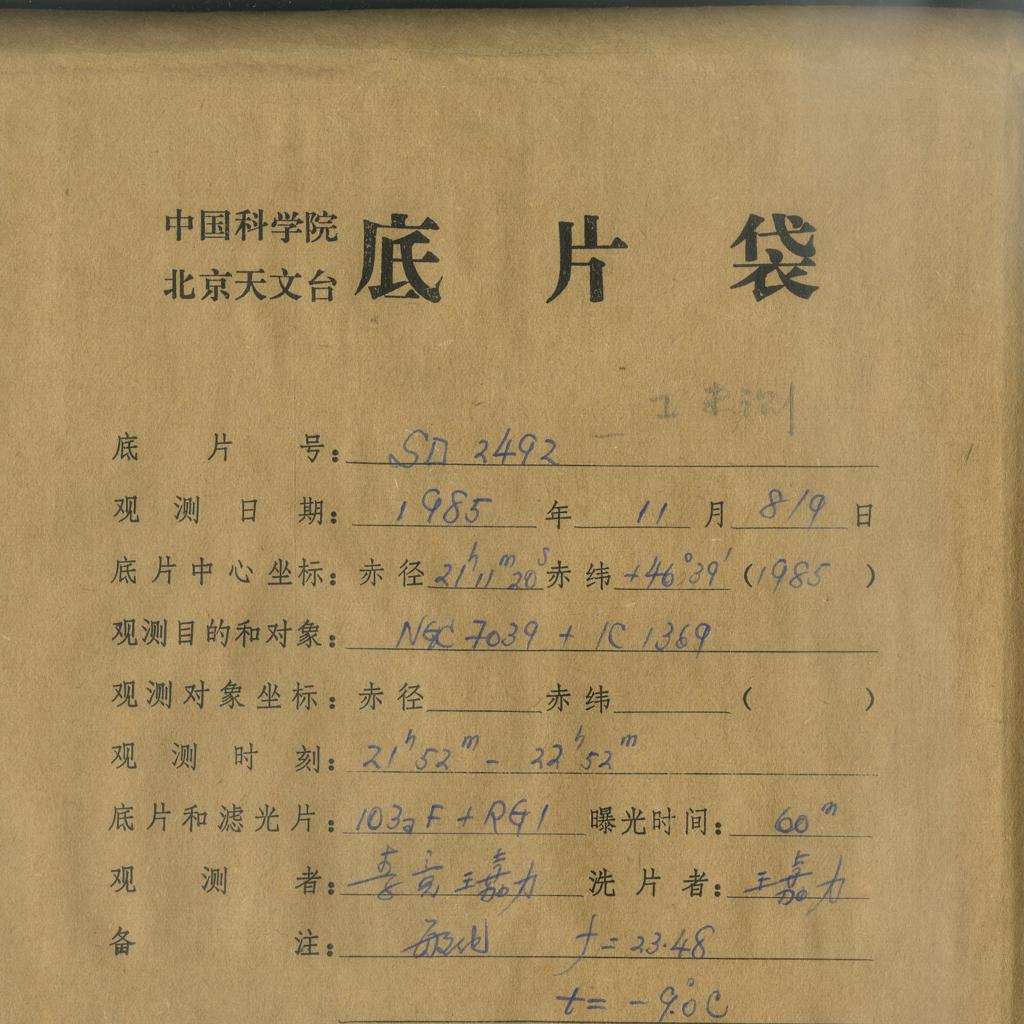 中国科学院
北京天文台
底片袋
工 未测
底片号: SΠ 2492
观测日期: 1985 年 11 月 8/9 日
底片中心坐标: 赤径 21ʰ11ᵐ20ˢ 赤纬 +46°39′ (1985)
观测目的和对象: NGC 7039 + IC 1369
观测对象坐标: 赤径 赤纬 ( )
观测时刻: 21ʰ52ᵐ - 22ʰ52ᵐ
底片和滤光片: 103aF + RG1 曝光时间: 60ᵐ
观测者: 李竞 王嘉力 洗片者: 王嘉力
备注: 敏化 f = 23.48
t = -9.°0C